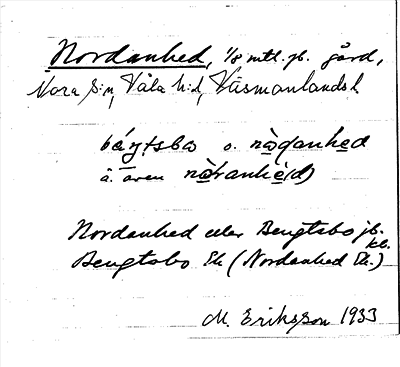 Nordanhed, 1/8 mtl. jb. gård,
Nora s:n, Våla h:d, Västmanlands l
báytsba o. nàḍanhed
ä. även nàranhè(d)
Nordanhed eller Bengtsbo jb.
Bengtsbo Ek (Nordanhed Ek.)
M. Eriksson 1933